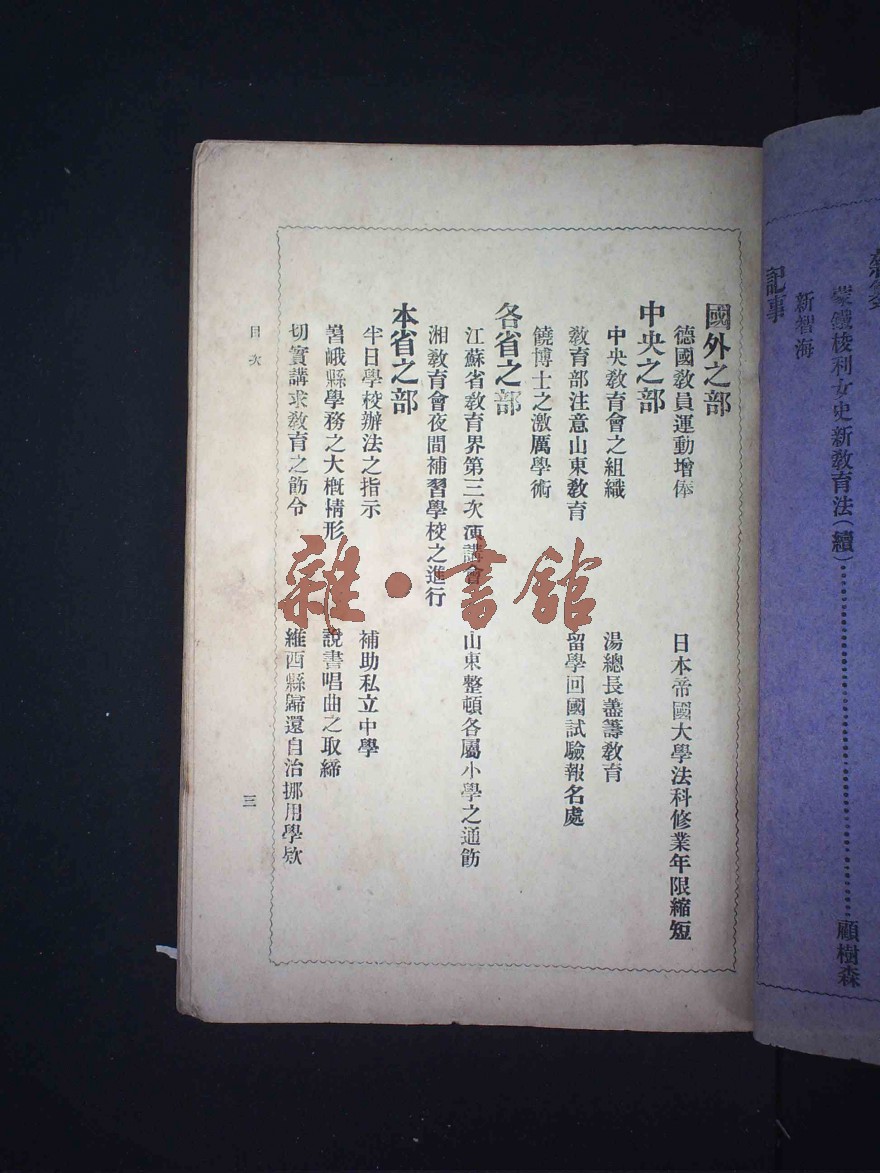 蒙鐵梭利女史新敎育法(續)…………顧樹森
新智海
記事
國外之部
德國敎員運動增俸 日本帝國大學法科修業年限縮短
中央之部
中央敎育會之組織 湯總長藎籌敎育
敎育部注意山東敎育 留學回國試驗報名處
饒博士之激厲學術
各省之部
江蘇省敎育界第三次演講會 山東整頓各屬小學之通飭
湘敎育會夜間補習學校之進行
本省之部
半日學校辦法之指示 補助私立中學
嶍峨縣學務之大概情形 說書唱曲之取締
切實講求敎育之飭令 維西縣歸還自治挪用學欵
目次
三
雜·書館